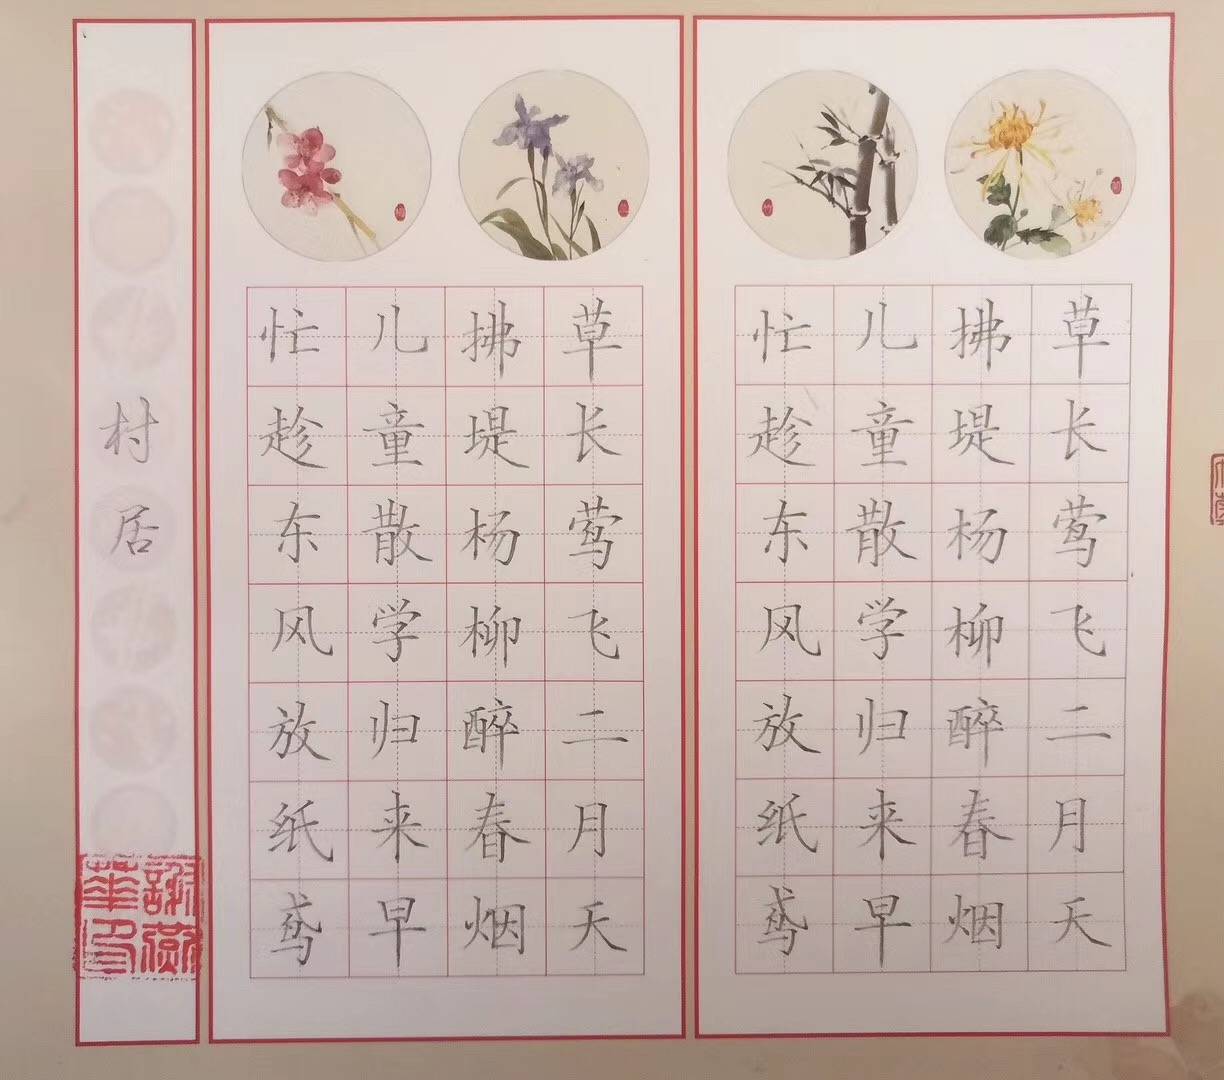 草长莺飞二月天
拂堤杨柳醉春烟
儿童散学归来早
忙趁东风放纸鸢
草长莺飞二月天
拂堤杨柳醉春烟
儿童散学归来早
忙趁东风放纸鸢
村居